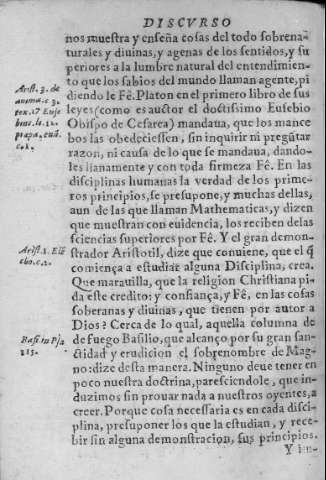 DISCVRSO
nos muestra y enseña cosas del todo sobrena-
turales y diuinas, y agenas de los sentidos, y su
periores a la lumbre natural del entendimien-
to que los sabios del mundo llaman agente, pi
diendo le Fê. Platon en el primero libro de sus
leyes (como es auctor el doctissimo Eusebio
Obispo de Cesarea) mandaua, que los mance
bos las obedeciessen, sin inquirir ni pregũtar
razon, ni causa de lo que se mandaua, dando-
les llanamente y con toda firmeza Fê. En las
disciplinas humanas la verdad de los prime-
ros principios, se presupone, y muchas dellas,
aun de las que llaman Mathematicas, y dizen
que muestran con euidencia, los reciben delas
sciencias superiores por Fê. Y el gran demon-
strador Aristotil, dize que conuiene, que el q̃
comiença a estudiar alguna Disciplina, crea.
Que marauilla, que la religion Christiana pi-
da este credito: y confiança, y Fê, en las cosas
soberanas y diuinas, que tienen por autor a
Dios? Cerca de lo qual, aquella columna de
de fuego Basilio, que alcanço por su gran san-
ctidad y erudicion el sobrenombre de Mag-
no: dize desta manera. Ninguno deue tener en
poco nuestra doctrina, paresciendole, que in-
duzimos sin prouar nada a nuestros oyentes, a
creer. Porque cosa necessaria es en cada disci-
plina, presuponer los que la estudian, y rece-
bir sin alguna demonstracion, sus principios.
Y in-
Arist. 3. de
anima. c. 3
tex. 17 Euse
bius. li. 12.
præpa. euã.
c. 1.
Arist. 1. Elẽ
cho. c. 2.
Basi. in Psa
115.